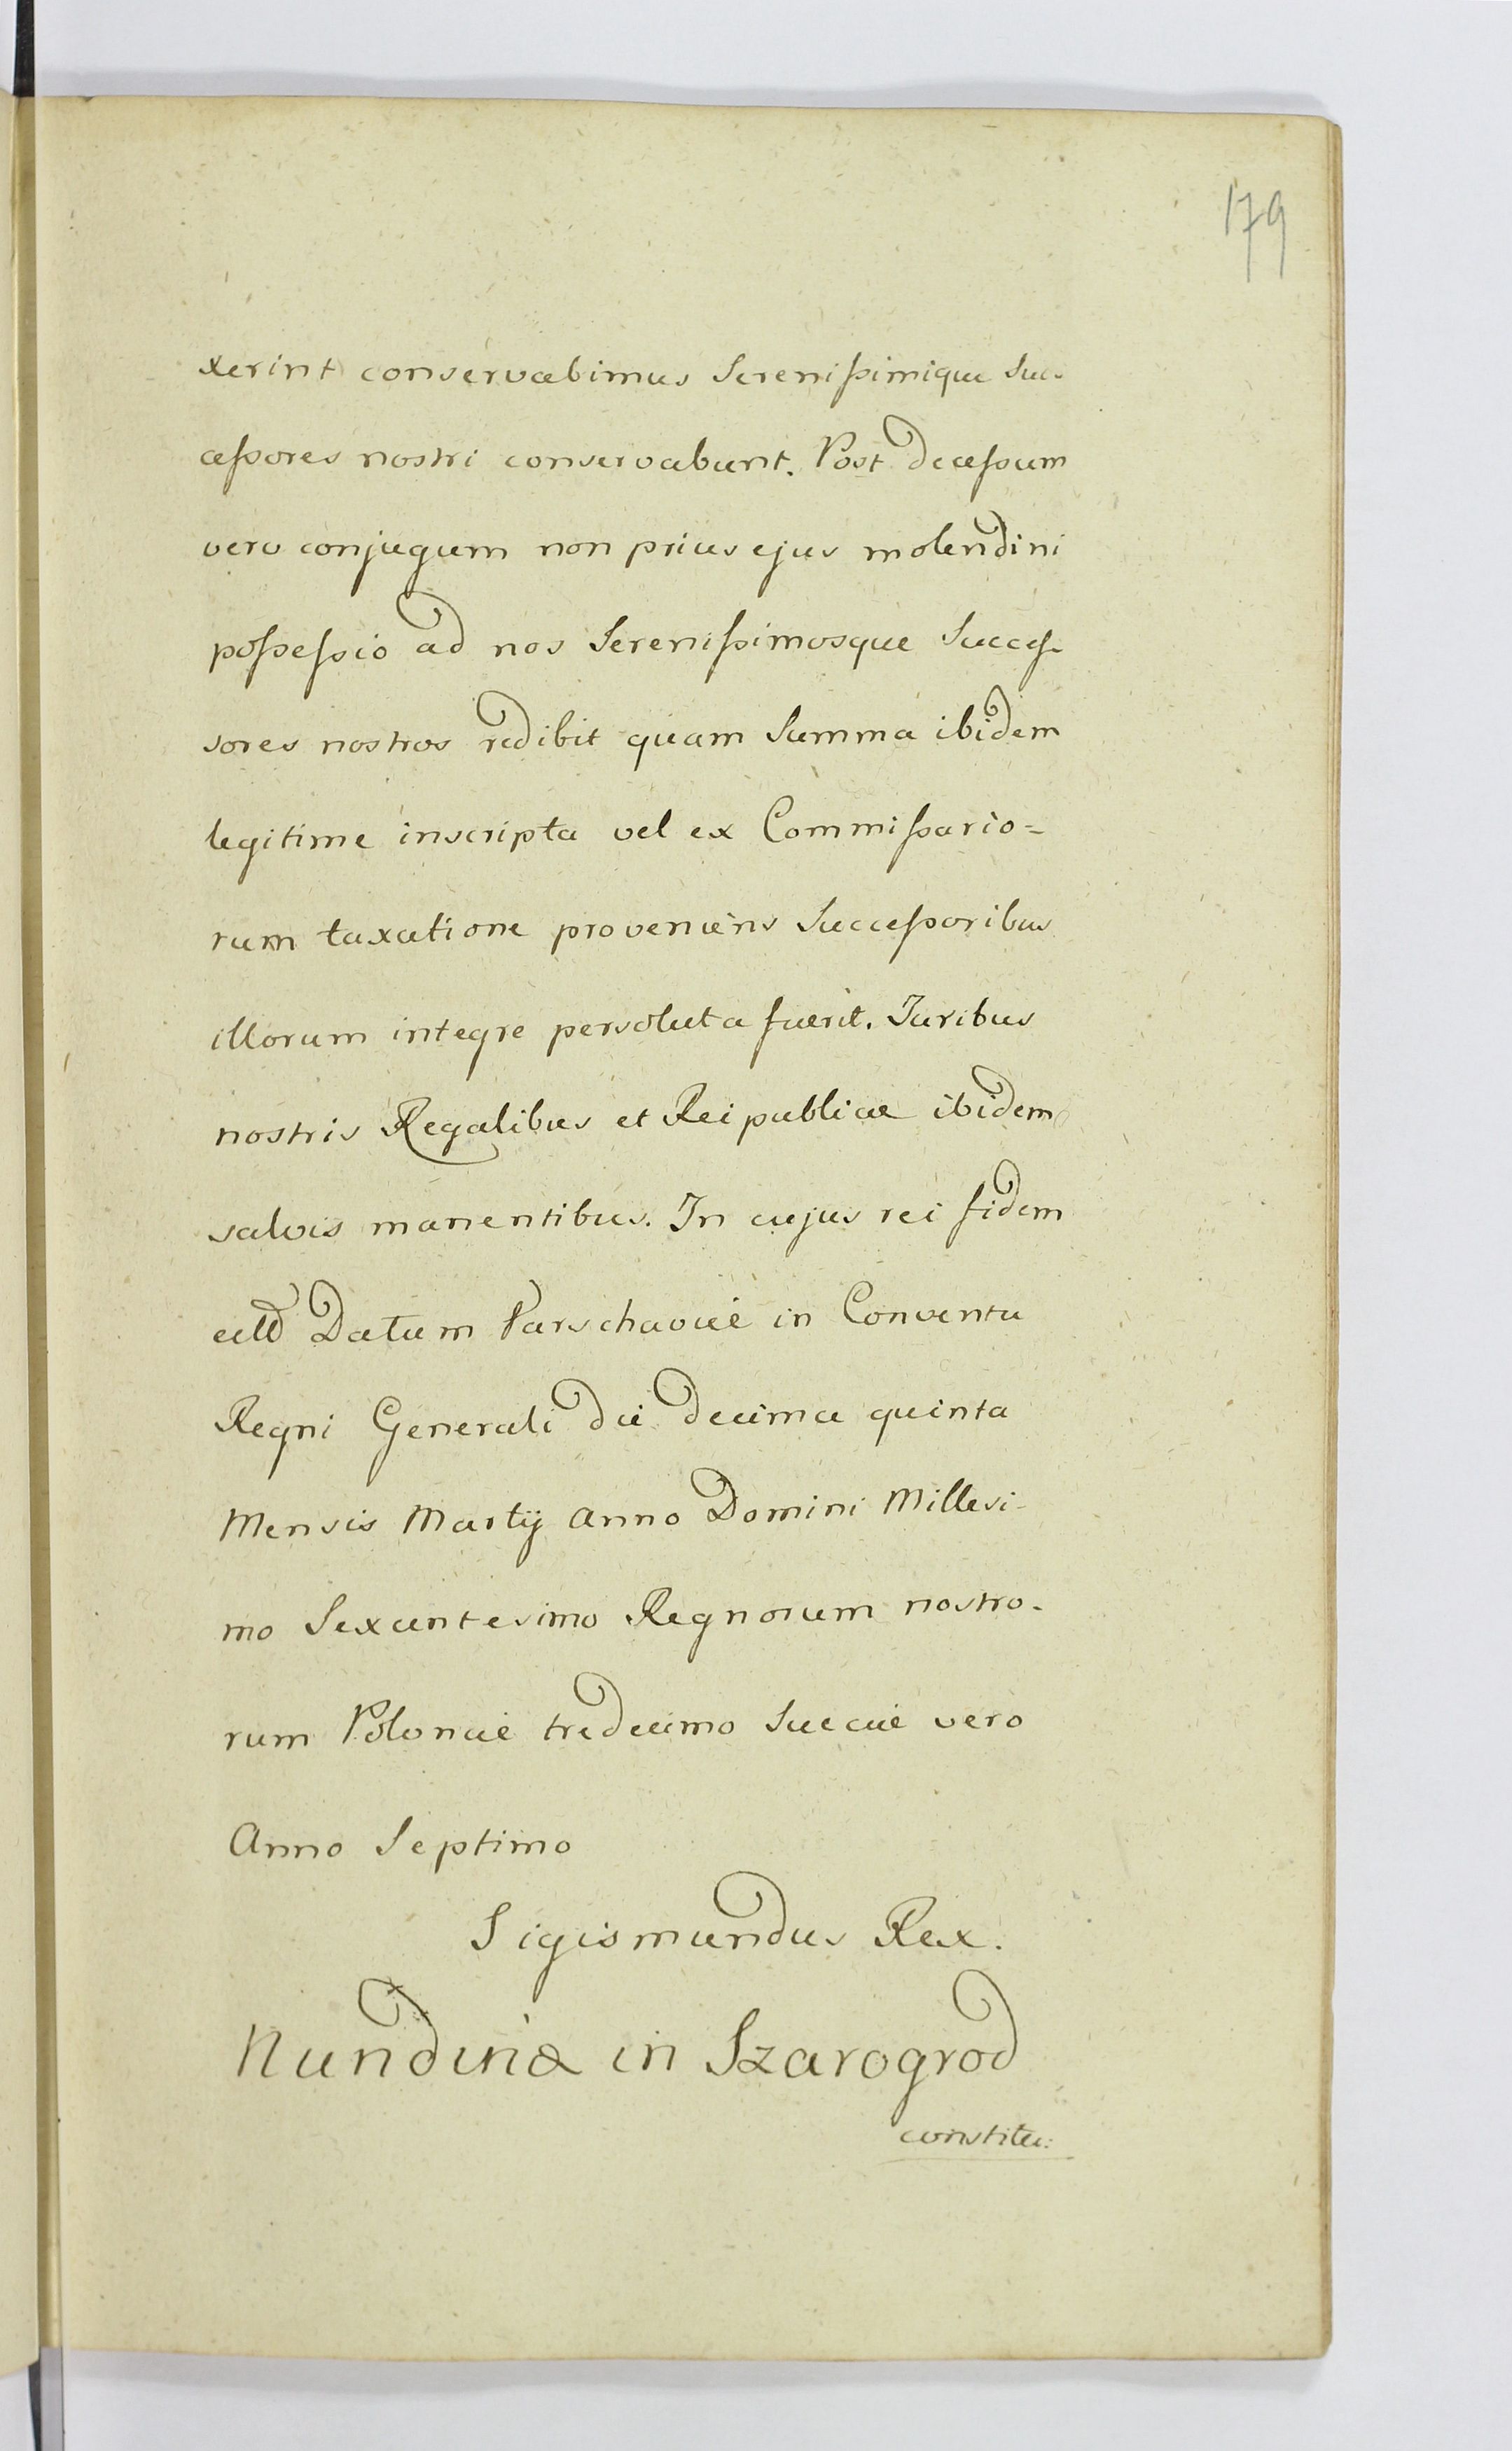 179
xerint conservabimus Serenißimique Suc-
ceßores nostri conservabunt. Post deceßum
vero conjugum non prius ejus molendini
poßeßio ad nos Serenißimosque Succes-
sores nostros redibit quam Summa ibidem
legitime inscripta vel ex Commißario=
rum taxatione proveniens Succeßoribus
illorum integre persoluta fuerit. Juribus
nostris Regalibus et Reipublicae ibidem
salvis manentibus. In cujus rei fidem
Datum Varschaviae in Conventu
Regni Generali die decima quinta
Mensis Martij Anno Domini Millesi-
mo Sexcentesimo Regnorum nostro-
rum Poloniae tredecimo Sueciae vero
Anno Septimo
Sigismundus Rex.
Nundinae in Szarogrod
constitu: